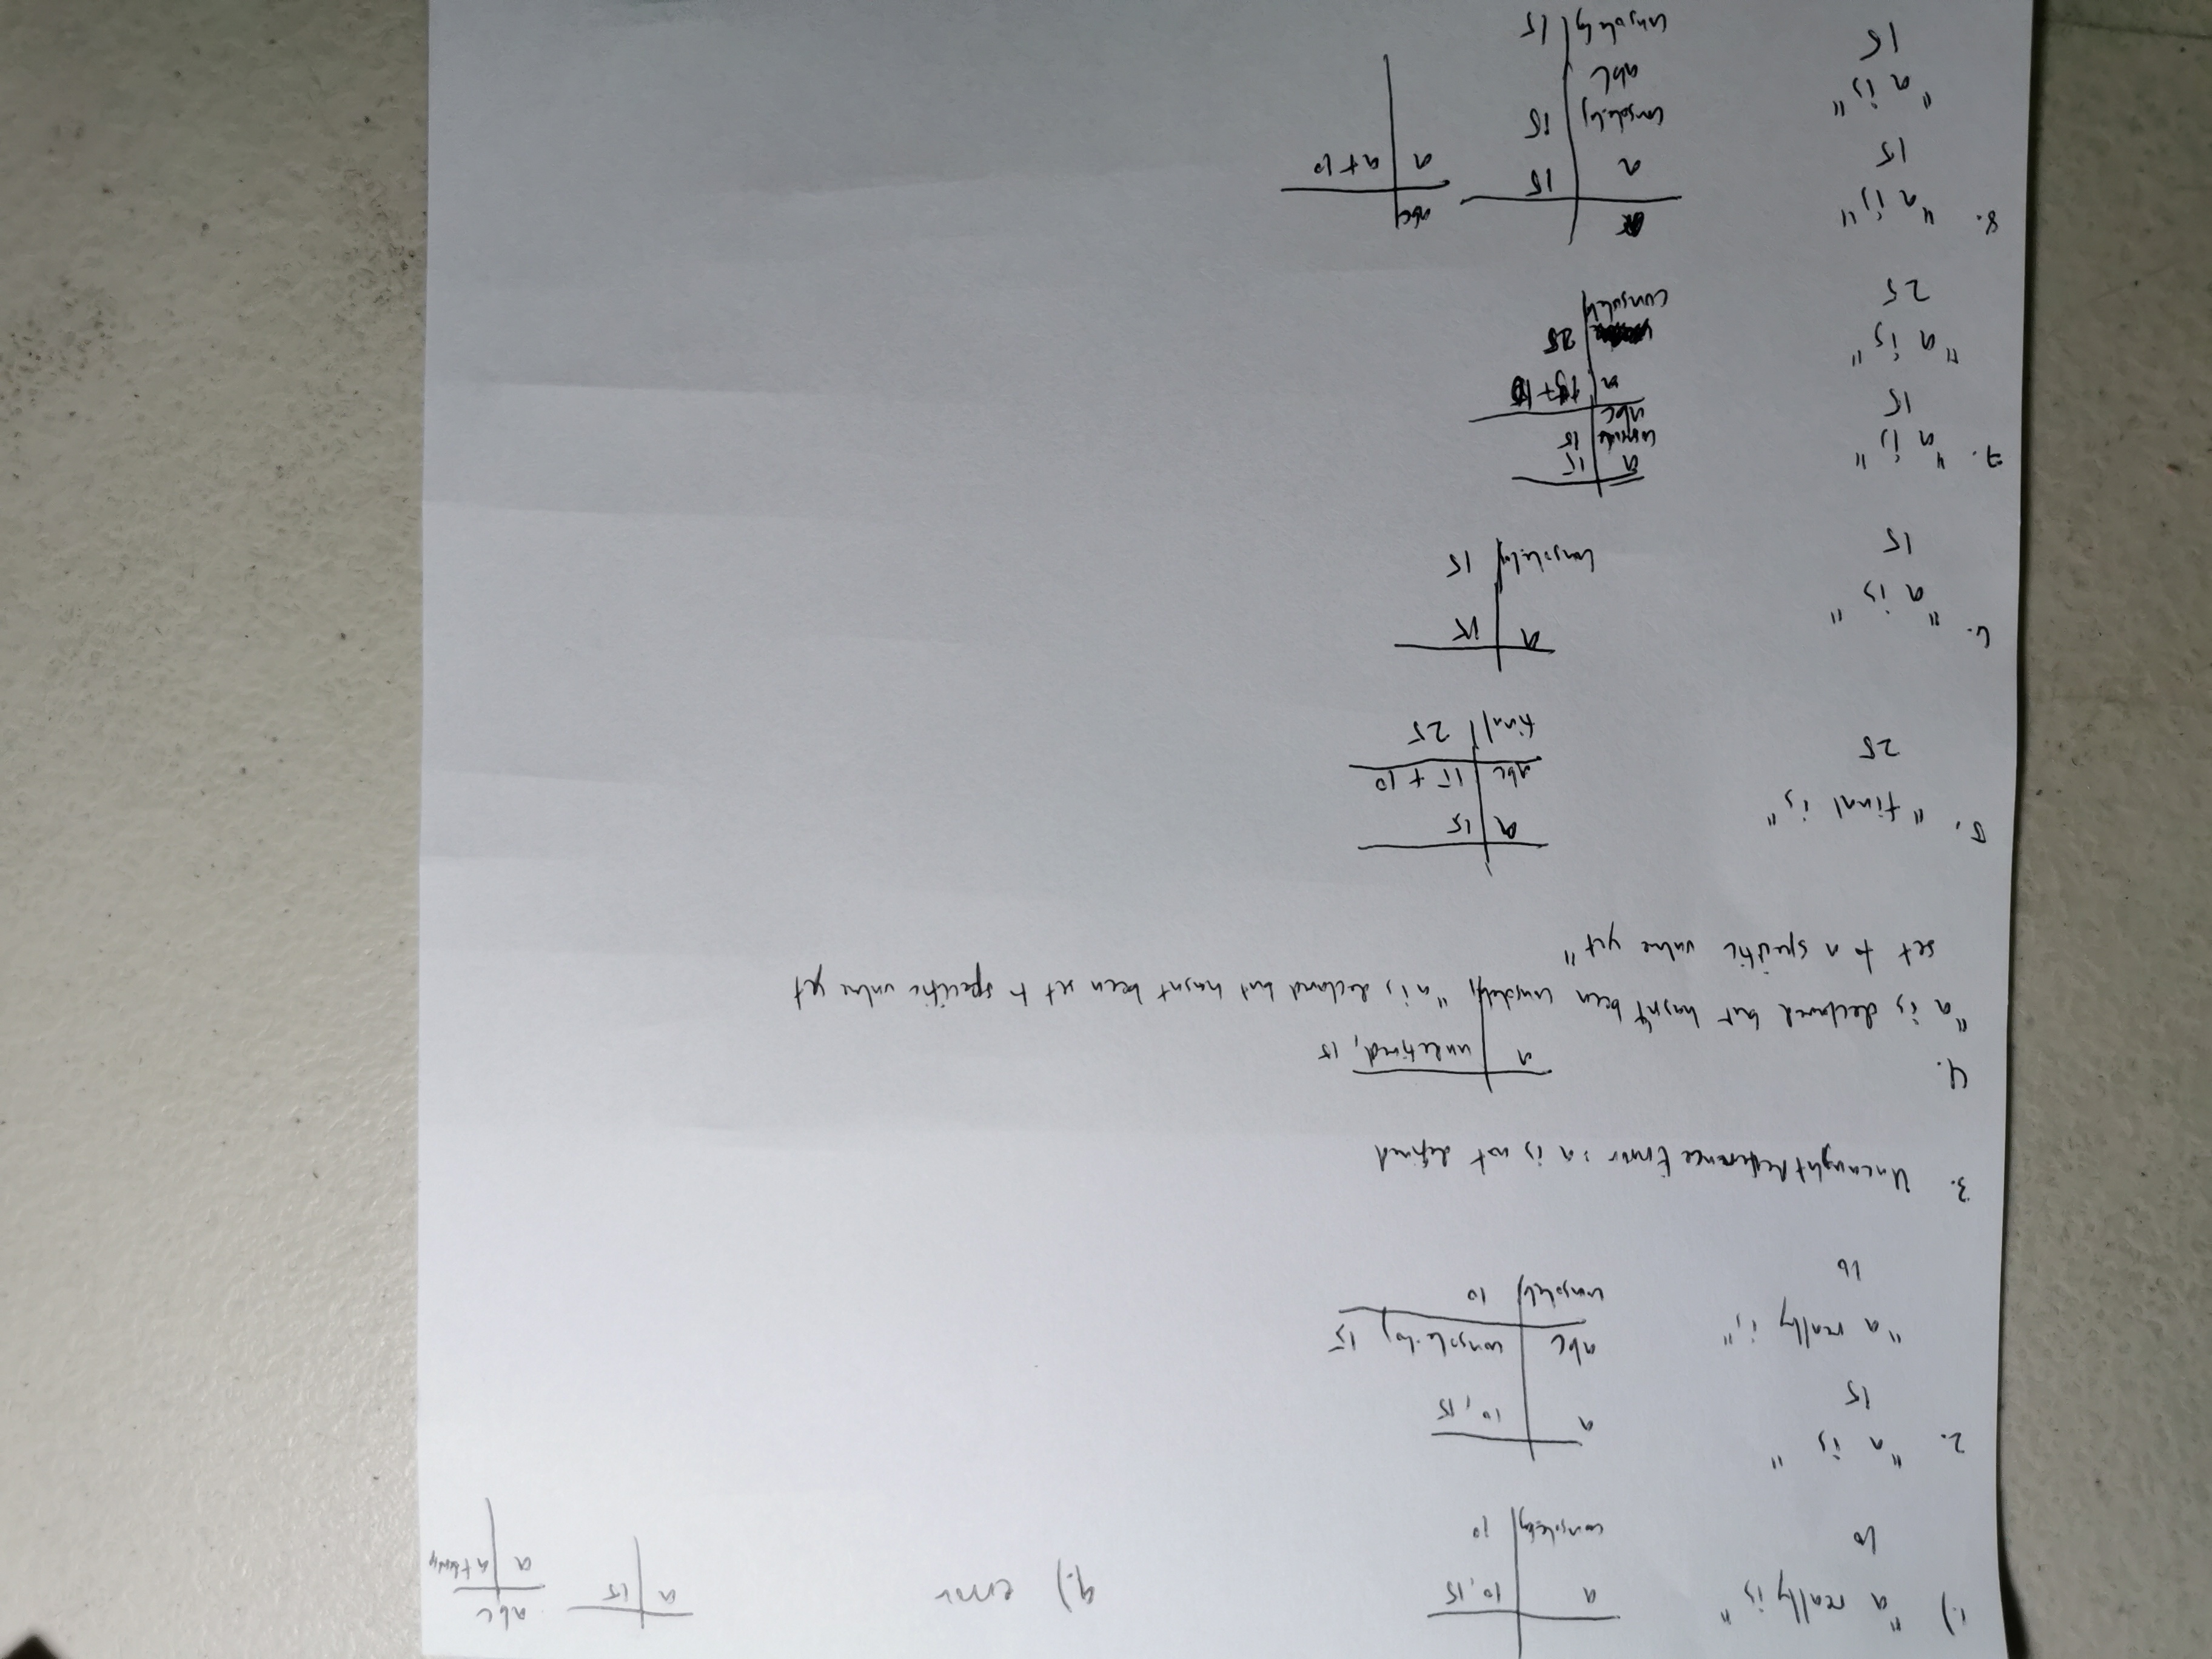 1.) "a really is"
10
a 10, 15
console.log 10
2. "a is "
15
"a really is"
10
a 10, 15
abc console.log 15
console.log 10
3. Uncaught Reference Error : a is not defined
4.
a undefined, 15
"a is declared but hasn't been
set to a specific value yet"
console.log "a is declared but hasnt been set to specific value yet
5. "final is"
25
a 15
abc 15 + 10
final 25
6.
"a is "
15
a 15
console.log 15
7. "a is"
15
"a is"
25
a 15
console 15
abc
a 15 + 10
25
console.log
8. "a is"
15
"a is"
15
a 15
console.log 15
abc
console.log 15
abc
a a + 10
9.) error
a 15
abc
a a +